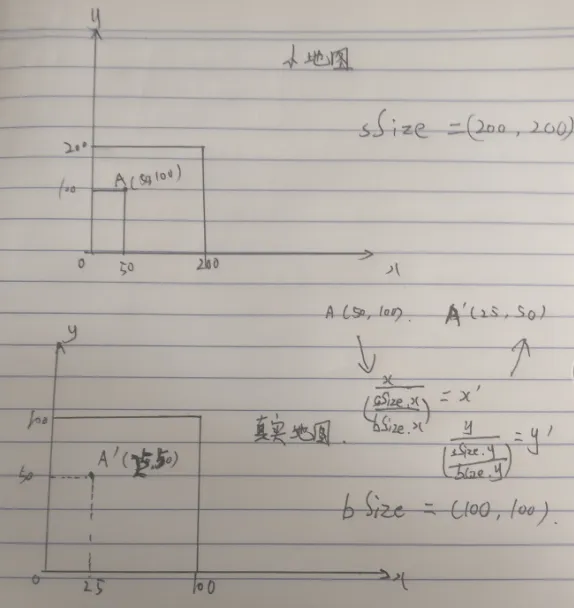 y
小地图
sSize = (200, 200)
200
100
A (50, 100)
0
50
200
x
A (50, 100).
A'(25, 50)
x / (sSize.x / bSize.x) = x'
y / (sSize.y / bSize.y) = y'
y
100
真实地图.
50
A' (25, 50)
bSize = (100, 100).
0
25
100
x